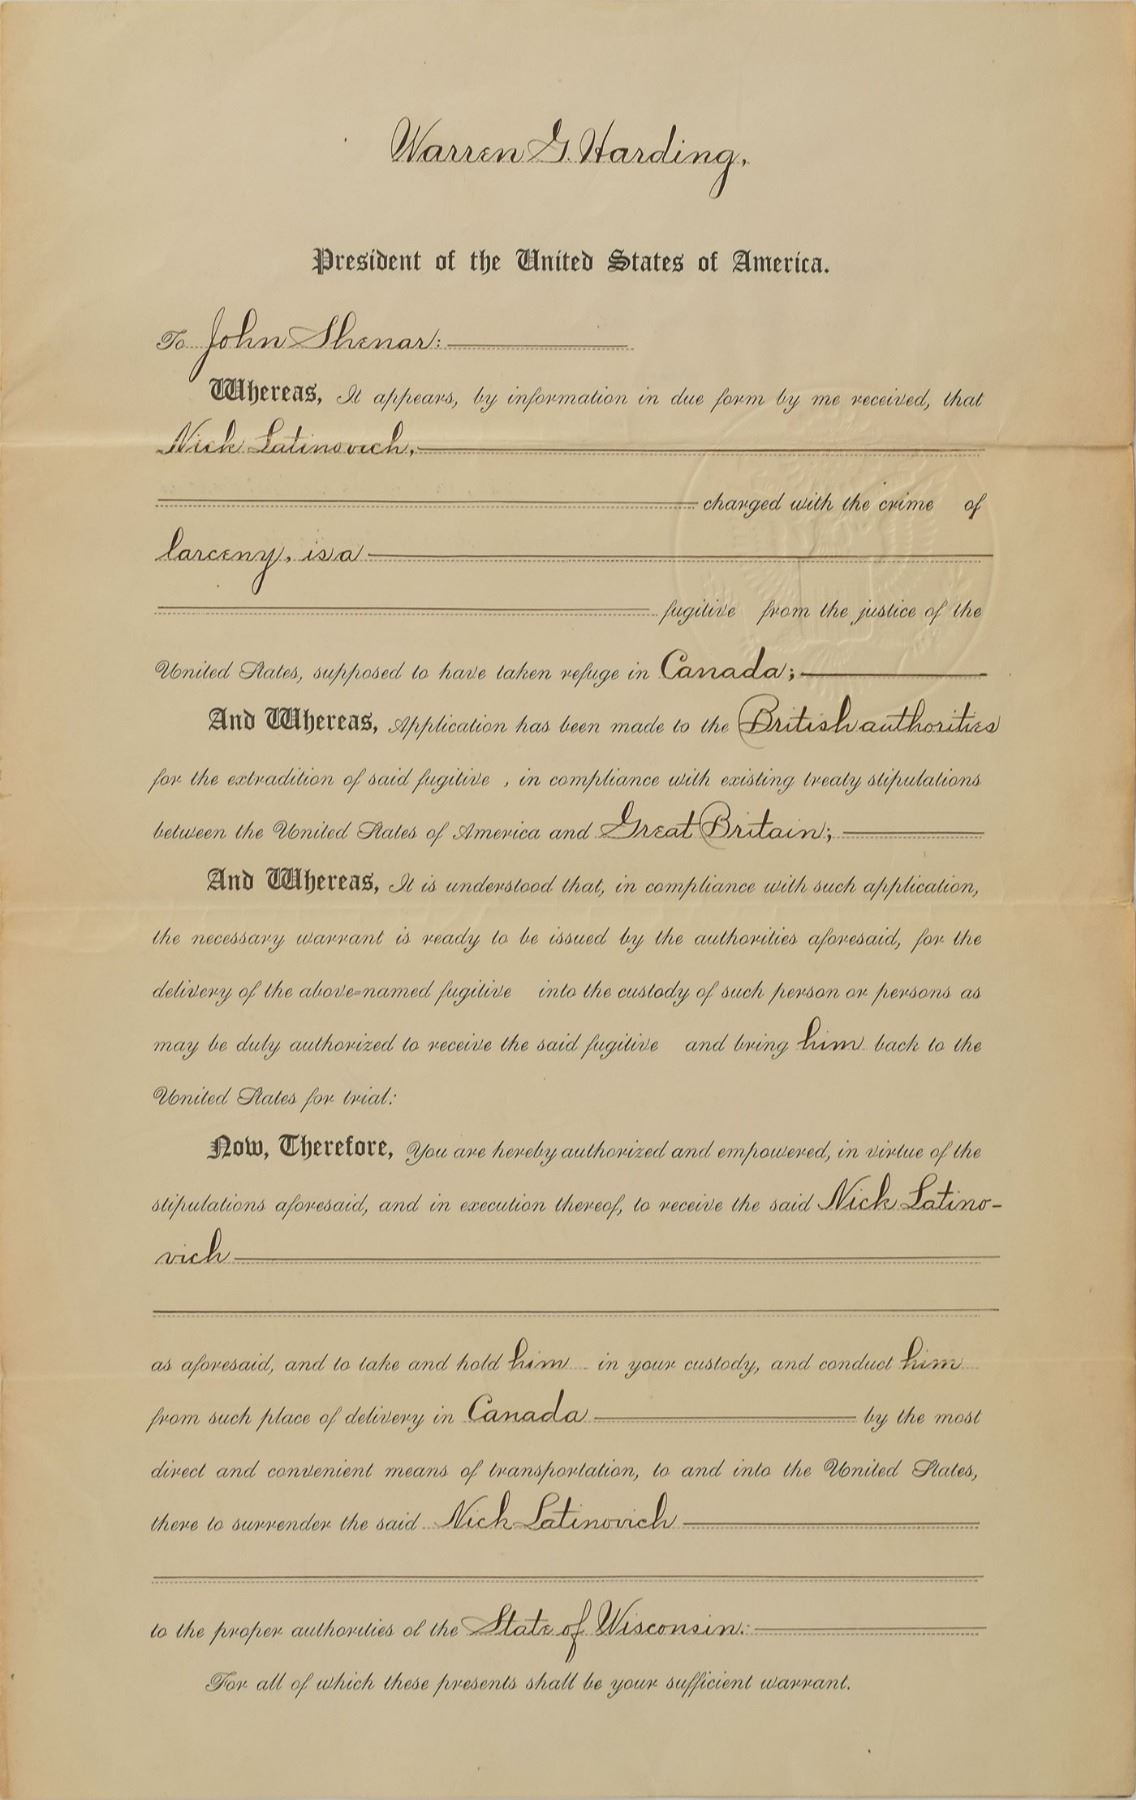 Warren G. Harding,
President of the United States of America.
To John Shenar:
Whereas, It appears, by information in due form by me received, that
Nick Latinovich,
charged with the crime of
larceny, is a
fugitive from the justice of the
United States, supposed to have taken refuge in Canada;
And Whereas, Application has been made to the British authorities
for the extradition of said fugitive , in compliance with existing treaty stipulations
between the United States of America and Great Britain;
And Whereas, It is understood that, in compliance with such application,
the necessary warrant is ready to be issued by the authorities aforesaid, for the
delivery of the above-named fugitive into the custody of such person or persons as
may be duly authorized to receive the said fugitive and bring him back to the
United States for trial:
Now, Therefore, You are hereby authorized and empowered, in virtue of the
stipulations aforesaid, and in execution thereof, to receive the said Nick Latino-
vich
as aforesaid, and to take and hold him in your custody, and conduct him
from such place of delivery in Canada by the most
direct and convenient means of transportation, to and into the United States,
there to surrender the said Nick Latinovich
to the proper authorities of the State of Wisconsin.
For all of which these presents shall be your sufficient warrant.